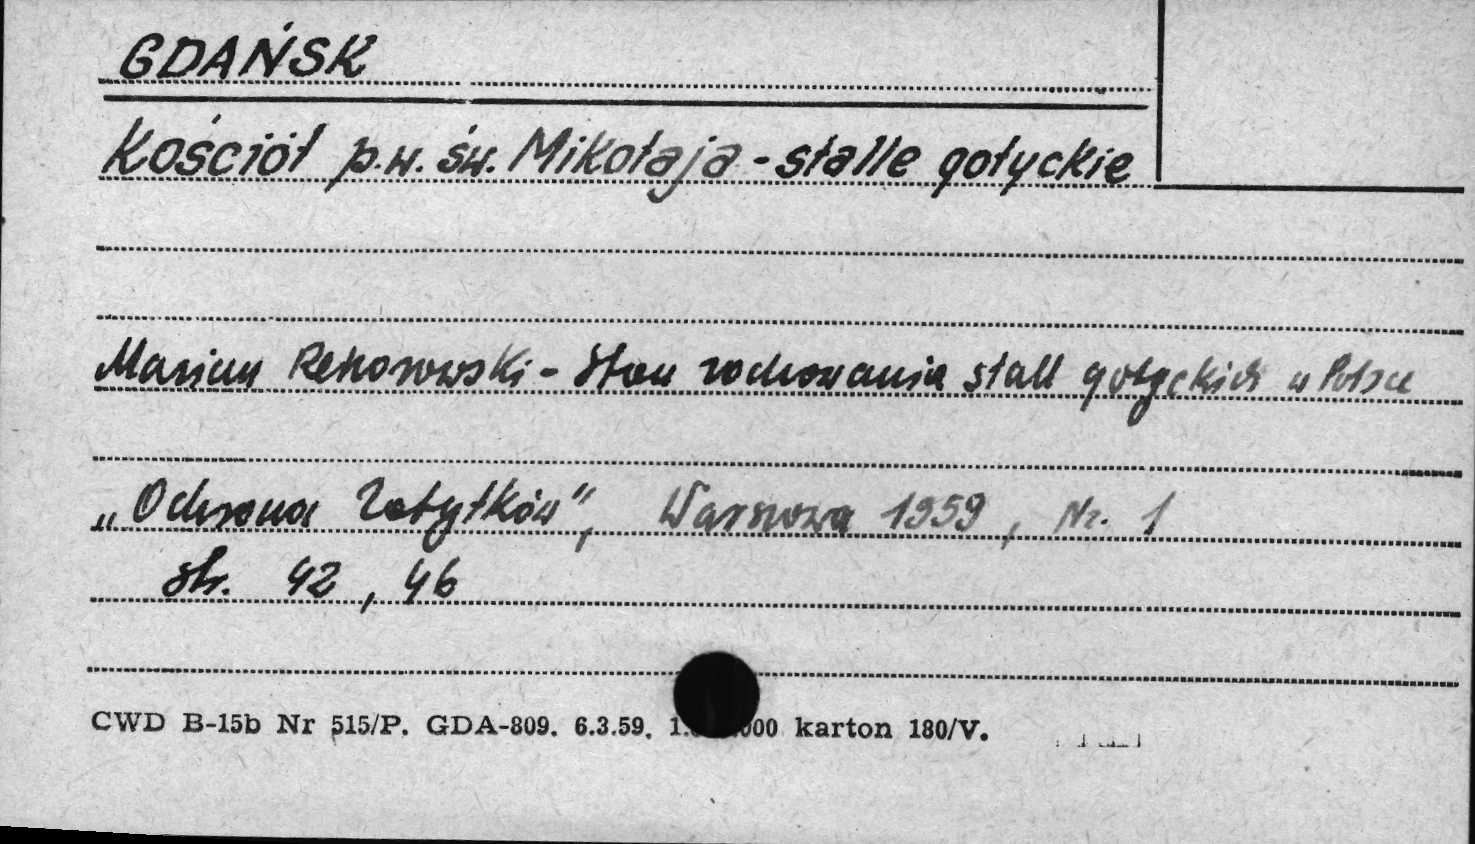 GDAŃSK
Kościół p.w. św. Mikołaja - stalle gotyckie
Mariusz Rekorowski - Stan zachowania stall gotyckich w Polsce
„Ochrona Zabytków", Warszawa 1959, Nr. 1
str. 42, 46
CWD B-15b Nr 515/P. GDA-809. 6.3.59. 000 karton 180/V.